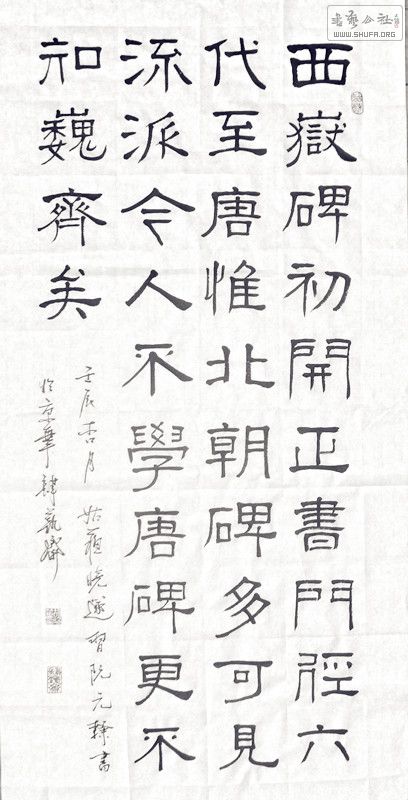 西嶽碑初開正書門徑六
代至唐惟北朝碑多可見
流派今人不學唐碑更不
知魏齊矣
壬辰杏月 姑蘇曉遜習阮元隸書
於京華
書藝公社
WWW.SHUFA.ORG